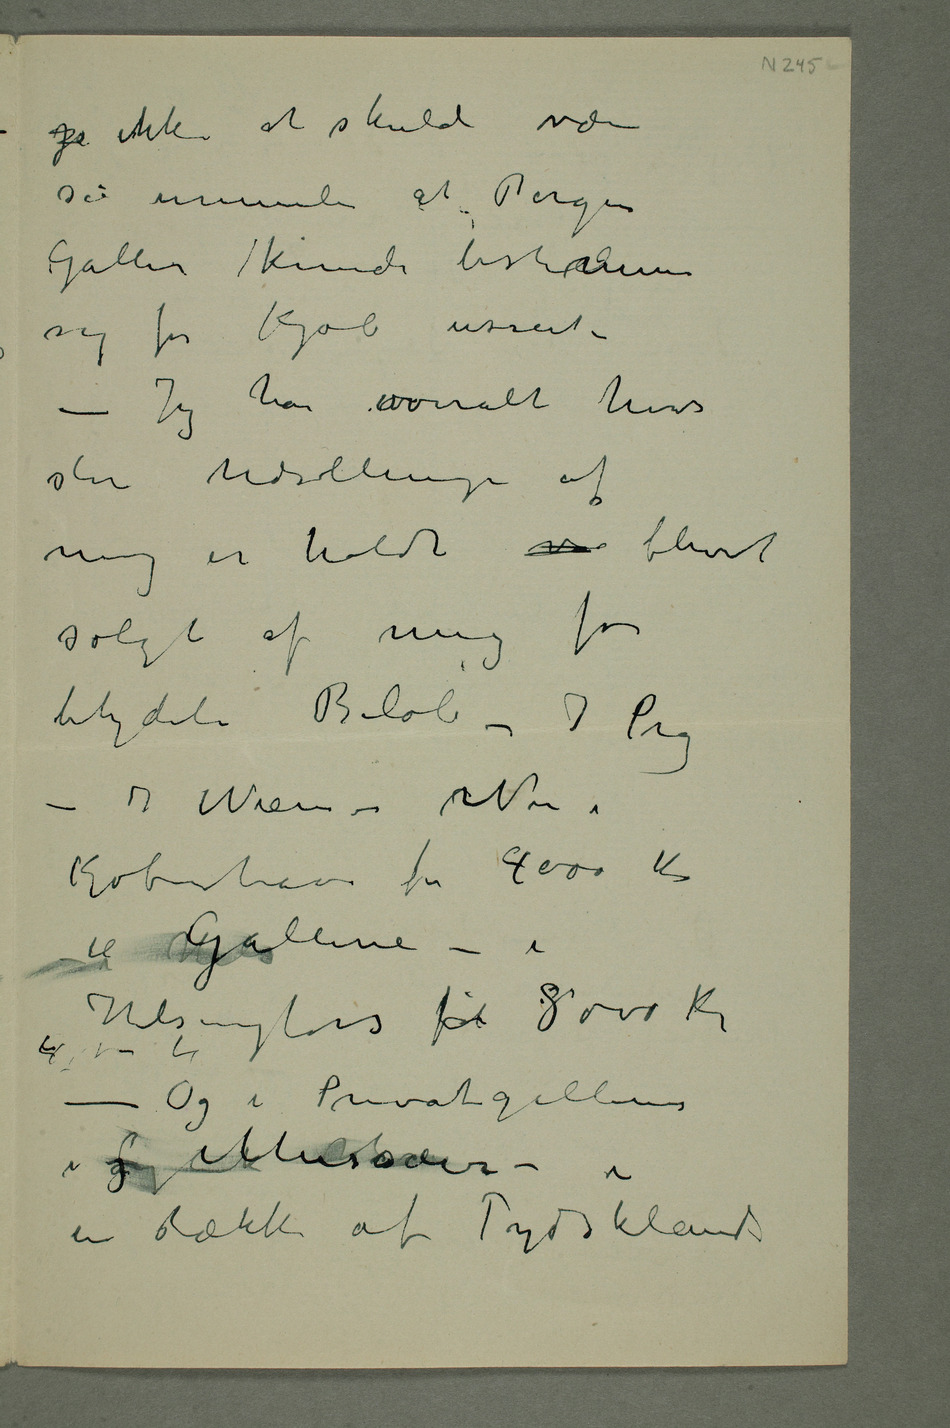 N 245
ja ikke at skulde være
så urimelig at Bergens
Galleri kunde bestemme
sig for Kjøb usœet
— Jeg har overalt hvor
større Udstillinger af
mig er holdt blevet
solgt af mig for
betydelige Beløb – I Prag
– I Wien – Nu i
Kjøbenhavn for 4000 Kr
til Galleriet – i
Helsingfors for 8000 Kr
— Og i Privatgallerier
i Museer – i
en Række af Tydsklands